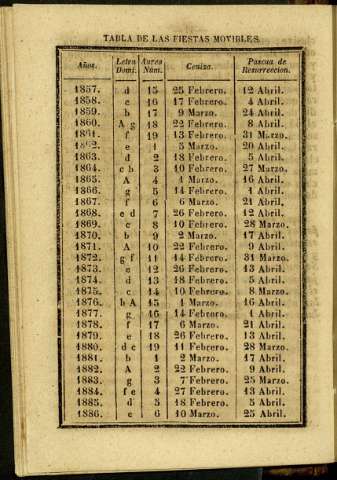 TABLA DE LAS FIESTAS MOVIBLES.
Años. Letra Domi. Aurea Núm. Ceniza. Pascua de Resurreccion.
1857. d 15 25 Febrero. 12 Abril.
1858. c 16 17 Febrero. 4 Abril.
1859. b 17 9 Marzo. 24 Abril.
1860. A g 18 22 Febrero. 8 Abril.
1861. f 19 13 Febrero. 31 Marzo.
1862. e 1 5 Marzo. 20 Abril.
1863. d 2 18 Febrero. 5 Abril.
1864. c b 3 10 Febrero. 27 Marzo
1865. A 4 1 Marzo. 16 Abril.
1866. g 5 14 Febrero. 1 Abril.
1867. f 6 6 Marzo. 21 Abril,
1868. e d 7 26 Febrero. 12 Abril.
1869. c 8 10 Febrero. 28 Marzo.
1870. b 9 2 Marzo. 17 Abril.
1871. A 10 22 Febrero. 9 Abril.
1872. g f 11 14 Febrero. 31 Marzo
1873. e 12 26 Febrero. 13 Abril.
1874. d 13 18 Febrero. 5 Abril.
1875. c 14 10 Febrero. 8 Marzo.
1876. b A 15 1 Marzo. 16 Abril.
1877. g 16 14 Febrero. 1 Abril.
1878. f 17 6 Marzo. 21 Abril.
1879. e 18 26 Febrero. 13 Abril.
1880. d c 19 11 Febrero. 28 Marzo.
1881. b 1 2 Marzo. 17 Abril.
1882. A 2 22 Febrero. 9 Abril.
1883. g 3 7 Febrero. 25 Marzo.
1884. f e 4 27 Febrero. 13 Abril.
1885. d 5 18 Febrero. 5 Abril.
1886. c 6 10 Marzo. 25 Abril.